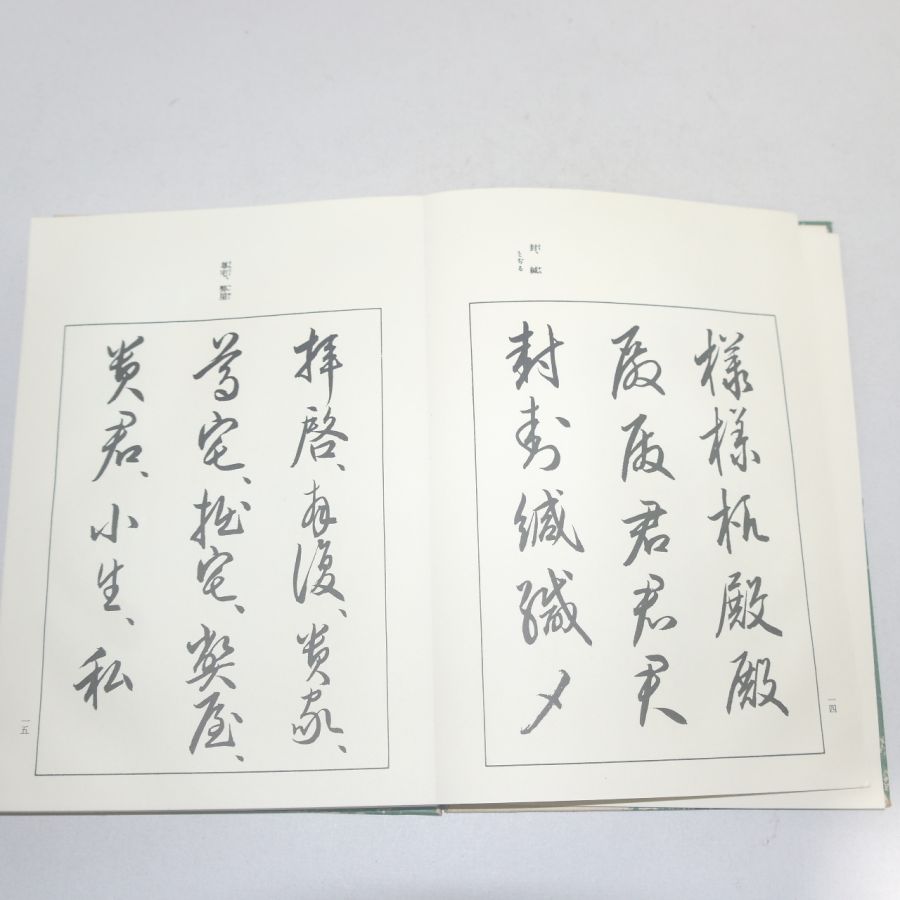 封、緘
とぢる
様様様殿殿
殿殿君君君
封封緘緘〆
一四
拝啓、拝復、貴家、
尊宅、拙宅、弊屋、
貴君、小生、私
一五